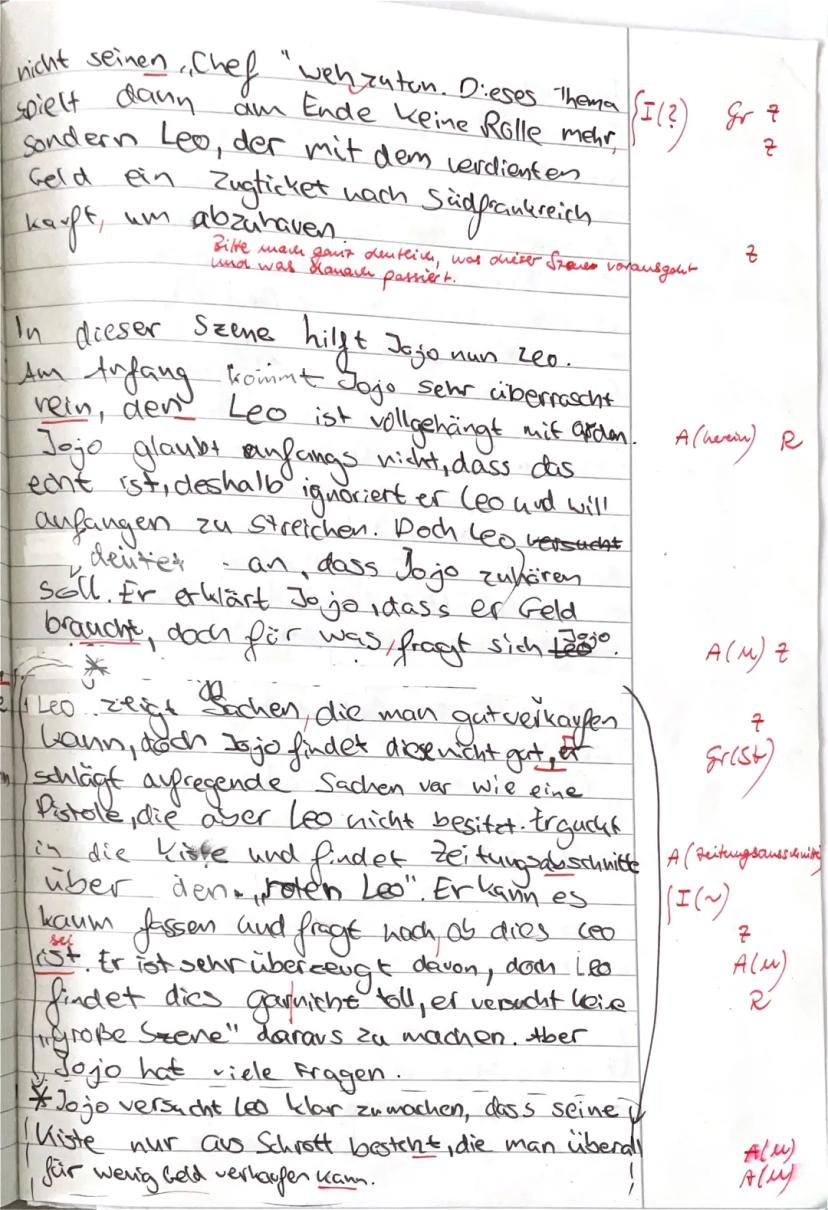 nicht seinen „Chef“ wehzuton. Dieses Thema
spielt dann am Ende keine Rolle mehr, {I(?) Gr Z
sondern Leo, der mit dem verdienten Z
Geld ein Zugticket nach Südfrankreich
kauft, um abzuhaven.
Bitte mach ganz deutlich, was dieser Szene vorausgeht Z
und was danach passiert.
In dieser Szene hilft Jojo nun Leo.
Am Anfang kommt Jojo sehr überrascht
rein, den Leo ist vollgehängt mit Orden. A(herein) R
Jojo glaubt anfangs nicht, dass das
echt ist, deshalb ignoriert er Leo und will
anfangen zu streichen. Doch Leo versucht
deutet an, dass Jojo zuhören
soll. Er erklärt Jojo, dass er Geld
braucht, doch für was, fragt sich Leo Jojo. A(M) Z
*
Leo zeigt Sachen, die man gut verkaufen Z
kann, doch Jojo findet diese nicht gut, er Gr(St)
schlägt aufregende Sachen var wie eine
Pistole, die aber Leo nicht besitzt. Er guckt
in die Kiste und findet Zeitungsabschnitte A(Zeitungsausschnitte)
über den „roten Leo“. Er kann es {I(~)
kaum fassen und fragt noch, ob dies Leo Z
sei
ist. Er ist sehr überzeugt davon, doch Leo A(M)
findet dies gar|nicht toll, er versucht keine R
„große Szene“ daraus zu machen. Aber
Jojo hat viele Fragen.
* Jojo versucht Leo klar zu machen, dass seine
Kiste nur aus Schrott besteht, die man überall A(M)
für wenig Geld verkaufen kann. A(M)